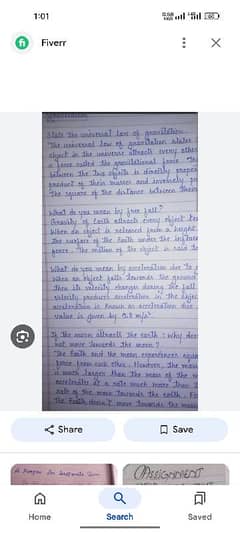 1:01
Fiverr
Gravitation
State the universal law of gravitation.
The universal law of gravitation states
object in the universe attracts every other
a force called the gravitational force. The
between the two objects is directly propor
product of their masses and inversely pr
the square of the distance between them
What do you mean by free fall?
Gravity of Earth attracts every object
When an object is released from a height,
the surface of the Earth under the
force. The motion of the object is said to
What do you mean by acceleration due to
When an object falls towards the ground
then its velocity changes during the fall
velocity produces acceleration in the objec
acceleration is known as acceleration due
value is given by 9.8 m/s²
If the moon attracts the earth, why does
not move towards the moon?
The Earth and the moon experiences equal
force from each other. However, the mass
is much larger than the mass of the
accelerates at a rate much more than
rate of the moon towards the earth. Fo
the Earth doesn't move towards the moon
Share
Save
A Reason for Desperate Sam
ASSIGNMENT
Home
Search
Saved